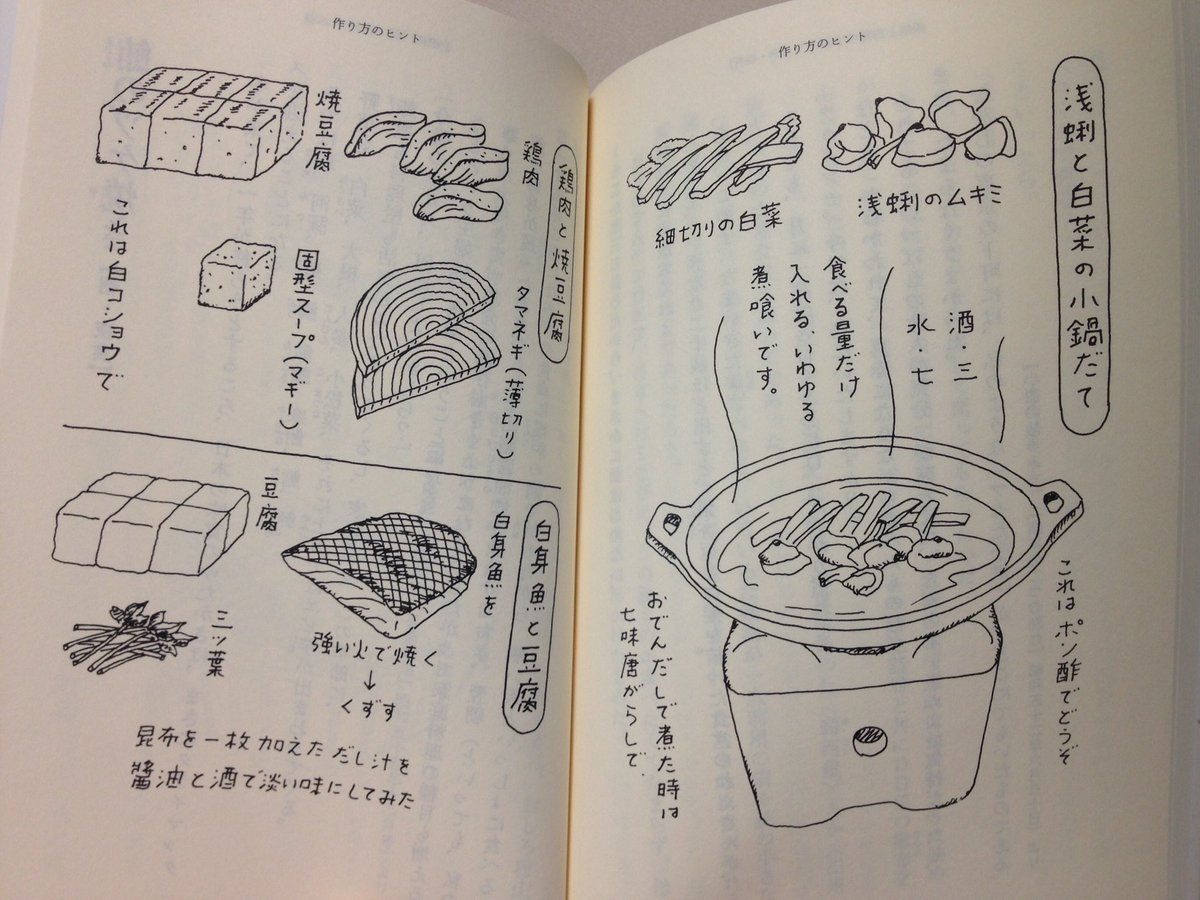 作り方のヒント
浅蜊と白菜の小鍋だて
浅蜊のムキミ
細切りの白菜
酒・三
水・七
食べる量だけ
入れる、いわゆる
煮喰いです。
これはポン酢でどうぞ
おでんだしで煮た時は
七味唐がらしで、
作り方のヒント
鶏肉と焼豆腐
鶏肉
焼豆腐
タマネギ(薄切り)
固型スープ(マギー)
これは白コショウで
白身魚と豆腐
白身魚を
強い火で焼く
↓
くずす
豆腐
三ッ葉
昆布を一枚加えただし汁を
醬油と酒で淡い味にしてみた